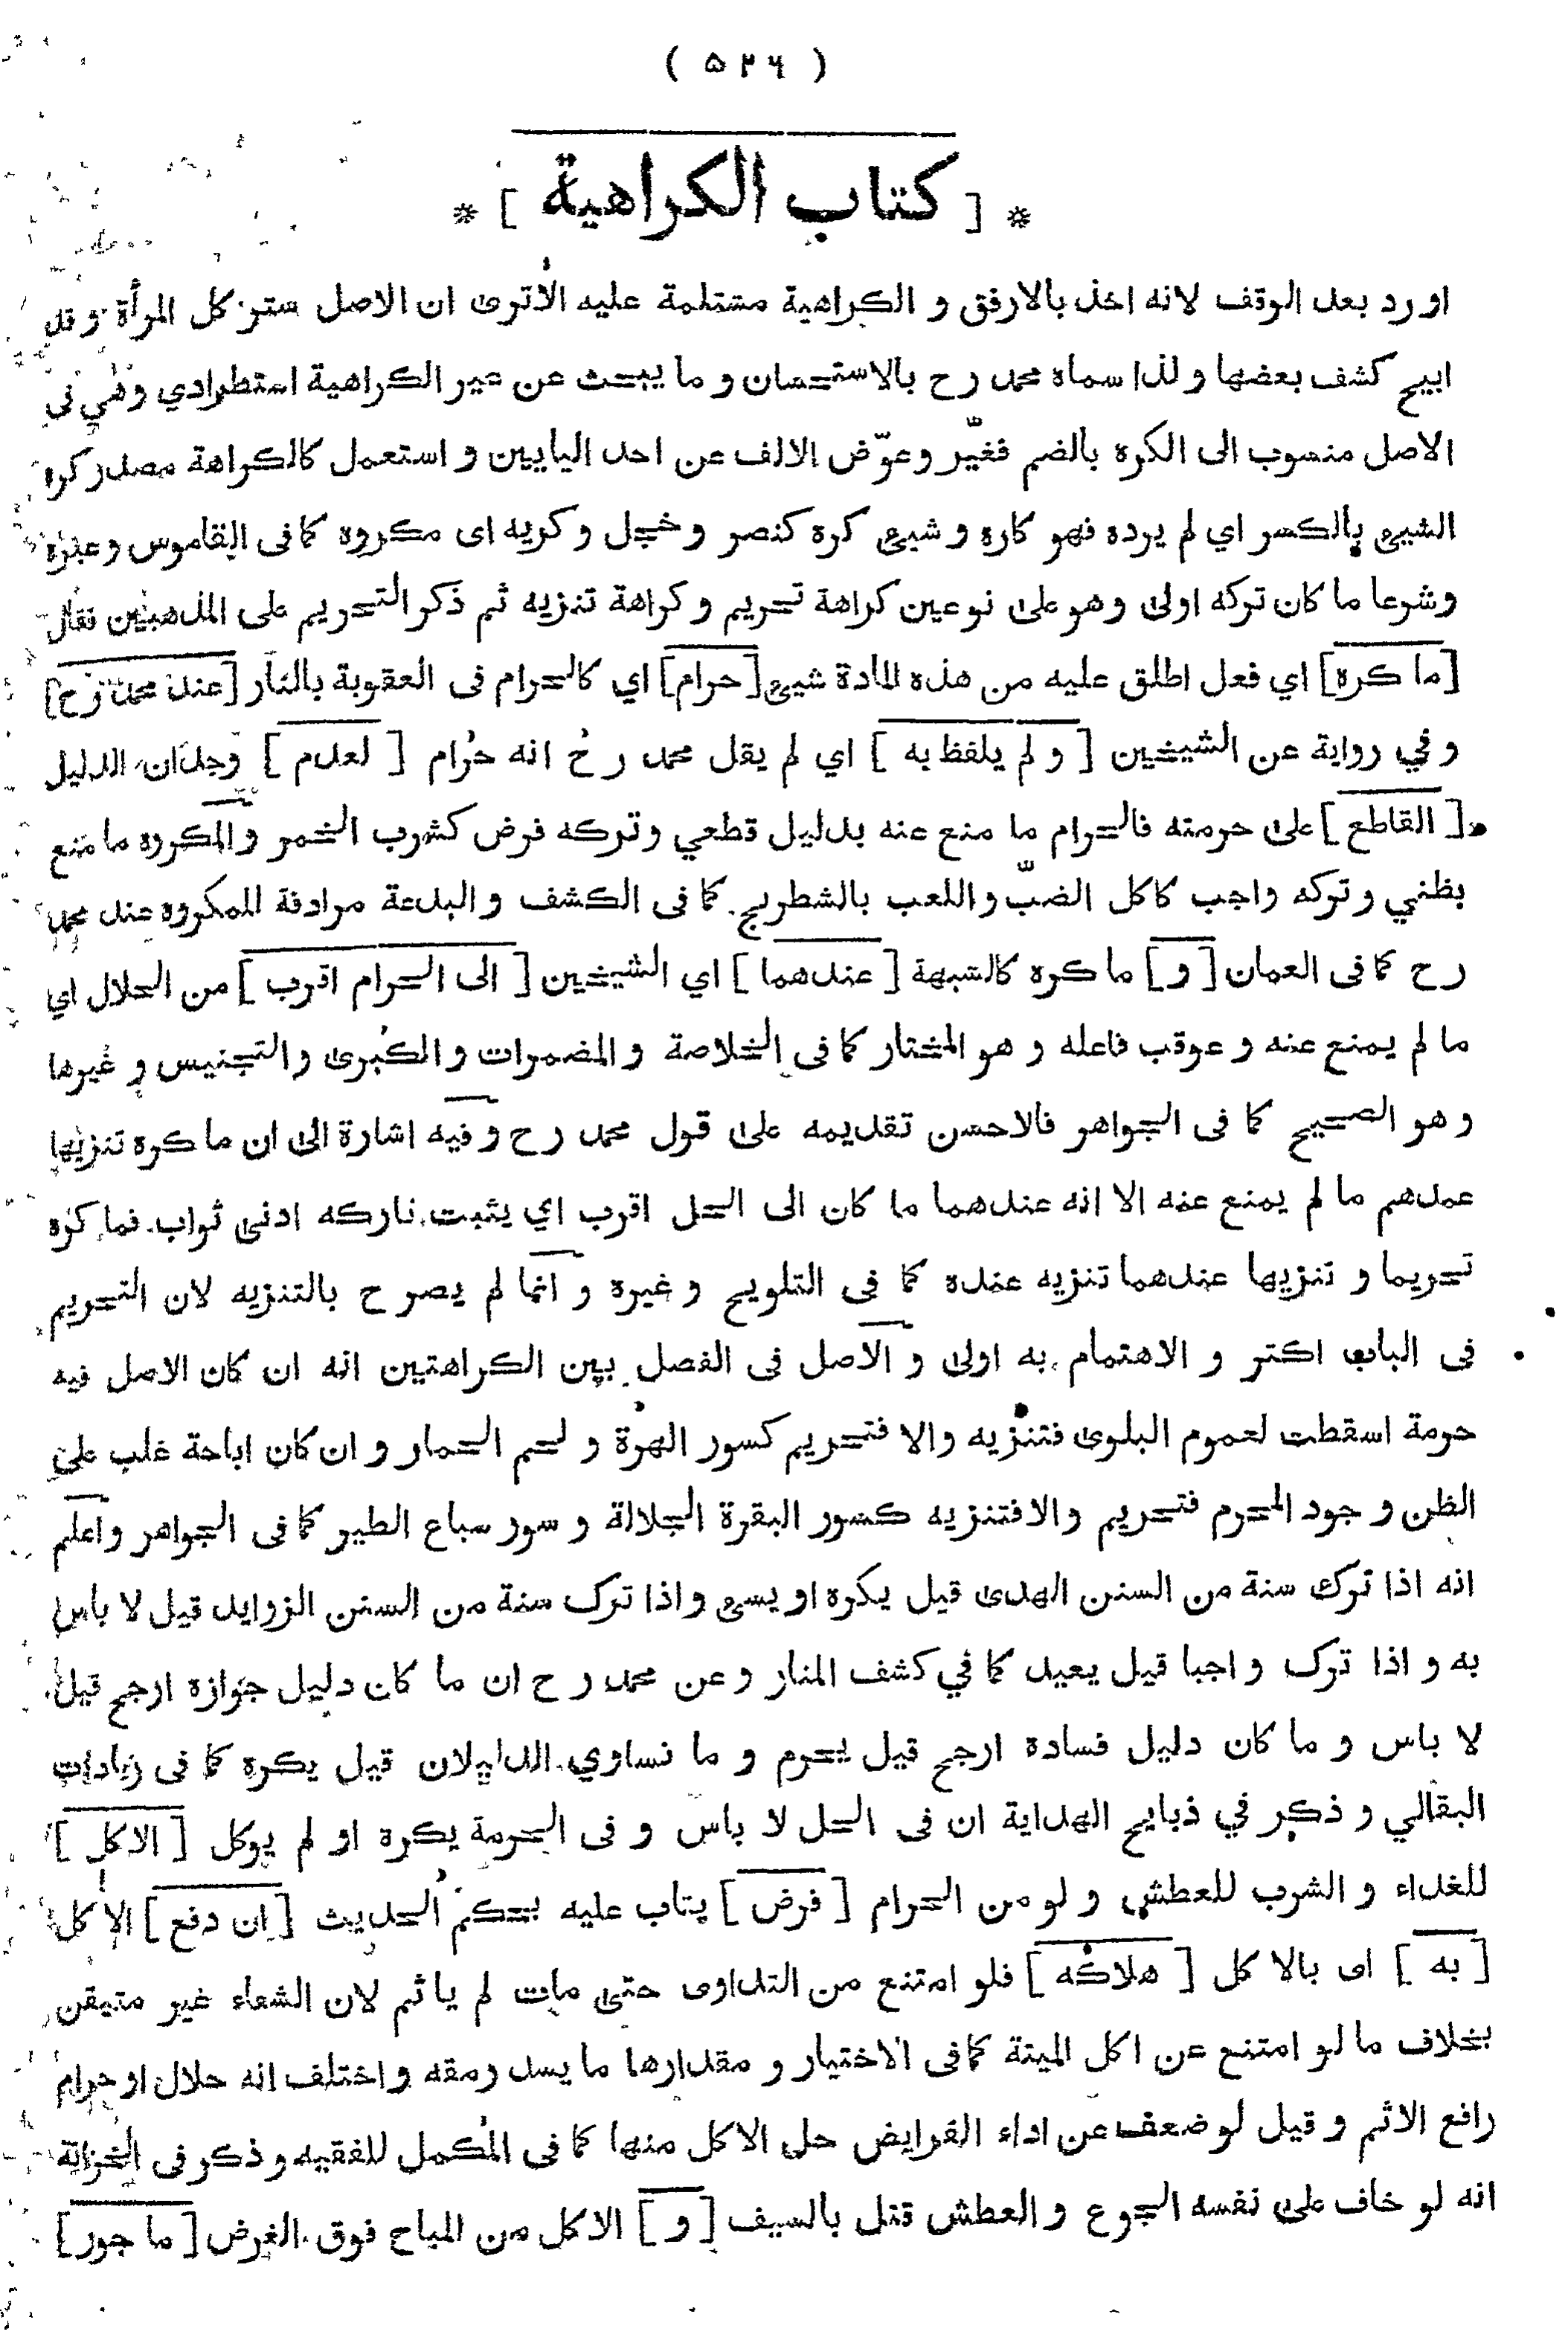 ( ٥٢٦ )
* [ كتاب الكراهية ] *
اورد بعد الوقف لانه اخذ بالارفق و الكراهية مشتملة عليه الاترى ان الاصل ستر كل المرأة و قد
ابيح كشف بعضها و لذا سماه محمد رح بالاستحسان و ما يبحث عن غير الكراهية استطرادي وهي في
الاصل منسوب الى الكره بالضم فغيّر وعوّض الالف عن احد اليايين و استعمل كالكراهة مصدر كره
الشيئ بالكسر اي لم يرده فهو كاره و شيئ كره كنصر وخجل وكريه اى مكروه كما فى القاموس وغيره
وشرعا ما كان تركه اولى وهو على نوعين كراهة تحريم و كراهة تنزيه ثم ذكر التحريم على المذهبين فقال
[ما كره] اي فعل اطلق عليه من هذه المادة شيئ [حرام] اي كالحرام فى العقوبة بالنار [عند محمد رح]
و في رواية عن الشيخين [ و لم يلفظ به ] اي لم يقل محمد رح انه حرام [ لعدم ] وجدان الدليل
[ القاطع ] على حرمته فالحرام ما منع عنه بدليل قطعي وتركه فرض كشرب الخمر والمكروه ما منع
بظني و تركه واجب كاكل الضبّ واللعب بالشطرنج كما فى الكشف و البدعة مرادفة للمكروه عند محمد
رح كما فى العمان [ و ] ما كره كالشبهة [ عندهما ] اي الشيخين [ الى الحرام اقرب ] من الحلال اي
ما لم يمنع عنه و عوقب فاعله و هو المختار كما فى الخلاصة و المضمرات و الكبرى والتجنيس و غيرها
و هو الصحيح كما فى الجواهر فالاحسن تقديمه على قول محمد رح وفيه اشارة الى ان ما كره تنزيها
عندهم ما لم يمنع عنه الا انه عندهما ما كان الى الحل اقرب اي يثبت تاركه ادنى ثواب فما كره
تحريما و تنزيها عندهما تنزيه عنده كما فى التلويح وغيره و انما لم يصرح بالتنزيه لان التحريم
فى الباب اكثر و الاهتمام به اولى و الاصل فى الفصل بين الكراهتين انه ان كان الاصل فيه
حرمة اسقطت لعموم البلوى فتنزيه والا فتحريم كسور الهرة و لحم الحمار و ان كان اباحة غلب على
الظن وجود المحرم فتحريم والافتنزيه كسور البقرة الجلالة و سور سباع الطير كما فى الجواهر واعلم
انه اذا ترك سنة من السنن الهدى قيل يكره او يسئ واذا ترك سنة من السنن الزوايد قيل لا باس
به و اذا ترك واجبا قيل يعيد كما في كشف المنار وعن محمد رح ان ما كان دليل جوازه ارجح قيل
لا باس و ما كان دليل فساده ارجح قيل يحرم و ما تساوي الدليلان قيل يكره كما فى زيادات
البقالي و ذكر في ذبايح الهداية ان فى الحل لا باس و فى الحرمة يكره او لم يوكل [ الاكل ]
للغداء و الشرب للعطش و لو من الحرام [ فرض ] يثاب عليه بحكم الحديث [ان دفع] الاكل
[ به ] اى بالاكل [ هلاكه ] فلو امتنع من التداوى حتى مات لم ياثم لان الشفاء غير متيقن
بخلاف ما لو امتنع عن اكل الميتة كما فى الاختيار و مقدارها ما يسد رمقه واختلف انه حلال او حرام
رافع الاثم و قيل لو ضعف عن اداء الفرايض حل الاكل منها كما فى المكمل للفقيه و ذكر فى الخزانة
انه لو خاف على نفسه الجوع و العطش قتل بالسيف [ و ] الاكل من المباح فوق الفرض [ ما جور ]